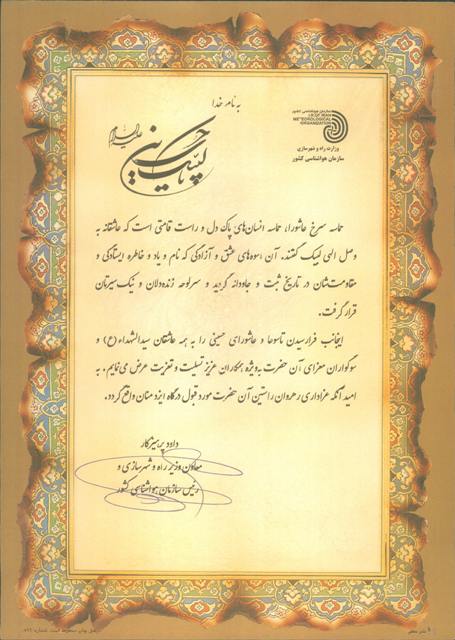 به نام خدا
سازمان هواشناسی کشور
I.R.OF IRAN
METEOROLOGICAL
ORGANIZATION
وزارت راه و شهرسازی
سازمان هواشناسی کشور
لبیک یا حسین علیه السلام
حماسه سرخ عاشورا، حماسه انسان‌های پاک دل و راست قامتی است که عاشقانه به
وصل الهی لبیک گفتند. آن اسوه‌های عشق و آزادگی که نام و یاد و خاطره ایستادگی و
مقاومت‌شان در تاریخ ثبت و جاودانه گردید و سرلوحه زنده‌دلان و نیک سیرتان
قرار گرفت.
اینجانب فرارسیدن تاسوعا و عاشورای حسینی را به همه عاشقان سیدالشهداء (ع) و
سوگواران معزای آن حضرت به‌ویژه همکاران عزیز تسلیت و تعزیت عرض می‌نمایم. به
امید آنکه عزاداری رهروان راستین آن حضرت مورد قبول درگاه ایزد منان واقع گردد.
داود پرهیزکار
معاون وزیر راه و شهرسازی و
رئیس سازمان هواشناسی کشور